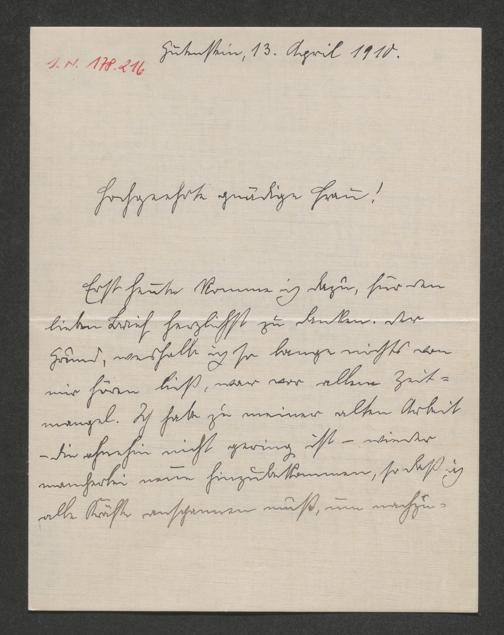 Gutenstein, 13. April 1910.
I. N. 178.216
Hochgeehrte gnädige Frau!
Erst heute komme ich dazu, für den
lieben Brief herzlichst zu danken. Der
Grund, weshalb ich so lange nichts von
mir hören ließ, war vor allem Zeit=
mangel. Ich habe zu meiner alten Arbeit
– die ohnehin nicht gering ist – wieder
mancherlei neue hinzubekommen, so daß ich
alle Kräfte anspannen muß, um nachzu=